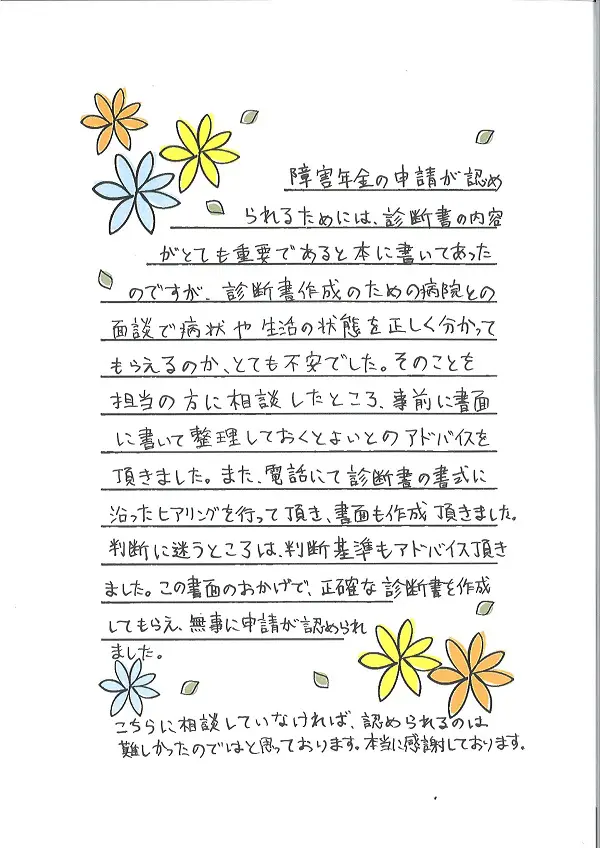 障害年金の申請が認め
られるためには、診断書の内容
がとても重要であると本に書いてあった
のですが、診断書作成のための病院との
面談で病状や生活の状態を正しく分かって
もらえるのか、とても不安でした。そのことを
担当の方に相談したところ、事前に書面
に書いて整理しておくとよいとのアドバイスを
頂きました。また、電話にて診断書の書式に
沿ったヒアリングを行って頂き、書面も作成頂きました。
判断に迷うところは、判断基準もアドバイス頂き
ました。この書面のおかげで、正確な診断書を作成
してもらえ、無事に申請が認められ
ました。
こちらに相談していなければ、認められるのは
難しかったのではと思っております。本当に感謝しております。